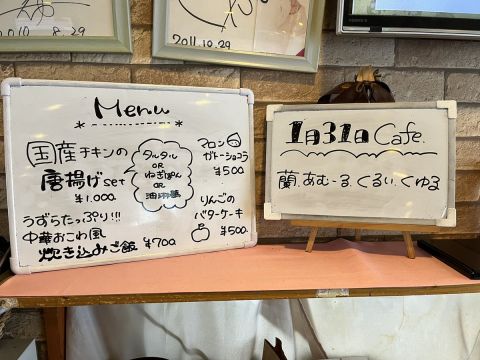 2010 8.29
2011.10.29
Menu
国産チキンの
唐揚げset
¥1.000
タルタル
OR
ねぎぽん
OR
油淋鶏
マロン
ガトーショコラ
¥500
うずらたっぷり!!!
中華おこわ風
炊き込みご飯 ¥700
りんごの
バターケーキ
¥500
1日31日 Cafe.
蘭.あむーる.くるい.くゆる